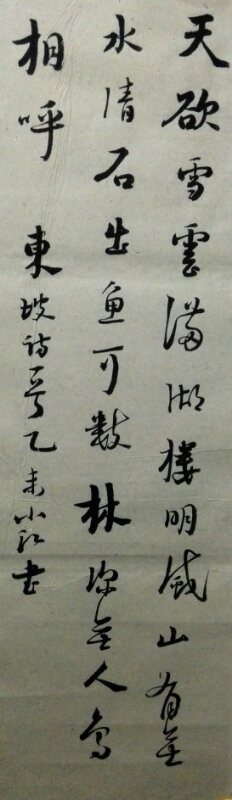 天欲雪雲滿湖樓明滅山有無
水清石出鱼可數林深無人鳥
相呼 東坡詩一首乙未小書